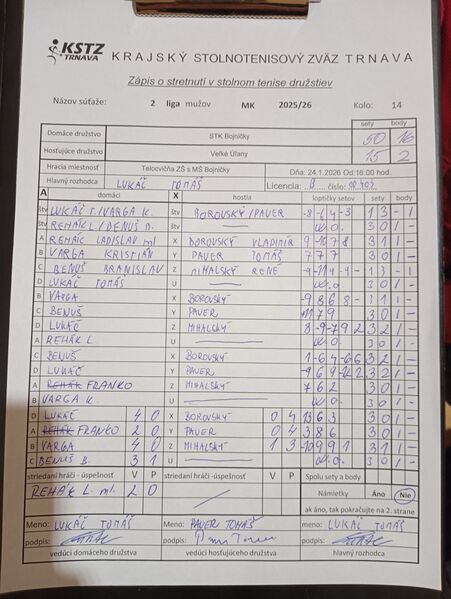 KSTZ TRNAVA KRAJSKÝ STOLNOTENISOVÝ ZVÄZ TRNAVA
Zápis o stretnutí v stolnom tenise družstiev
Názov súťaže: 2 liga mužov MK 2025/26 Kolo: 14
sety body
Domáce družstvo STK Bojničky 50 16
Hosťujúce družstvo Veľké Úľany 15 2
Hracia miestnosť Telocvičňa ZŠ s MŠ Bojničky Dňa: 24.1.2026 Od:16:00 hod.
Hlavný rozhodca LUKÁČ TOMÁŠ Licencia: B číslo:
A domáci X hostia loptičky setov sety body
štv LUKÁČ T./VARGA K. štv BOROVSKÝ/PAUER 1 3 - 1
štv REHÁK L./BENUŠ B. štv w.o. 3 0 1 -
A REHÁK LADISLAV ml X BOROVSKÝ VLADIMÍR 3 1 1 -
B VARGA KRISTIÁN Y PAUER TOMÁŠ 7 7 7 3 0 1 -
C BENUŠ BRANISLAV Z MIHALSKÝ RENÉ 1 3 - 1
D LUKÁČ TOMÁŠ U w.o. 3 0 1 -
B VARGA X BOROVSKÝ -9 8 6 8 3 1 1 -
C BENUŠ Y PAUER 11 7 9 3 0 1 -
D LUKÁČ Z MIHALSKÝ 8 -9 -7 9 2 3 2 1 -
A REHÁK L. U w.o. 3 0 1 -
C BENUŠ X BOROVSKÝ 3 2 1 -
D LUKÁČ Y PAUER 3 2 1 -
A FRANKO Z MIHALSKÝ 7 6 2 3 0 1 -
B VARGA K. U w.o. 3 0 1 -
D LUKÁČ 4 0 X BOROVSKÝ 0 4 13 6 3 3 0 1 -
A FRANKO 2 0 Y PAUER 0 4 3 8 6 3 0 1 -
B VARGA 4 0 Z MIHALSKÝ 1 3 3 1 1 -
C BENUŠ B. 3 1 U w.o. 3 0 1 -
striedaní hráči - úspešnosť V P striedaní hráči - úspešnosť V P Spolu sety a body
REHÁK L. ml. 2 0 Námietky Áno Nie
ak áno, tak pokračujte na 2. strane
Meno: LUKÁČ TOMÁŠ Meno: PAUER TOMÁŠ Meno: LUKÁČ TOMÁŠ
podpis: podpis: podpis:
vedúci domáceho družstva vedúci hosťujúceho družstva hlavný rozhodca